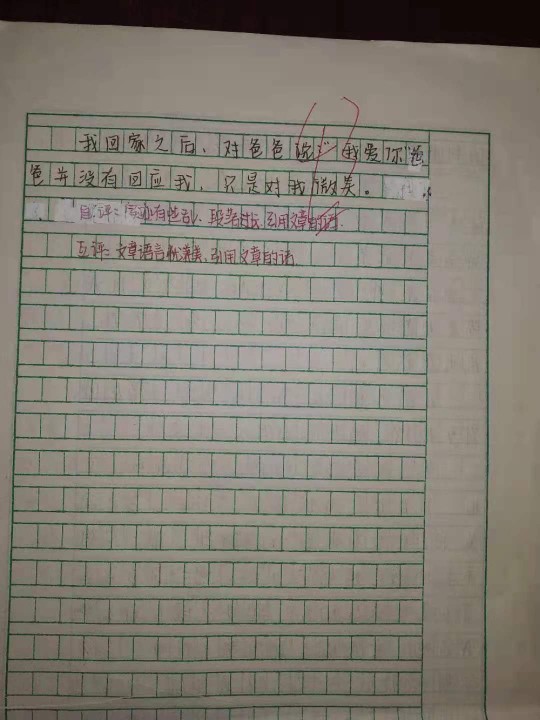 我回家之后、对爸爸说:"我爱你"爸
爸并没有回应我,只是对我微笑。
自评:有些乱、段落过长、引用文章的话.
互评:文章语言优美、引用文章的话